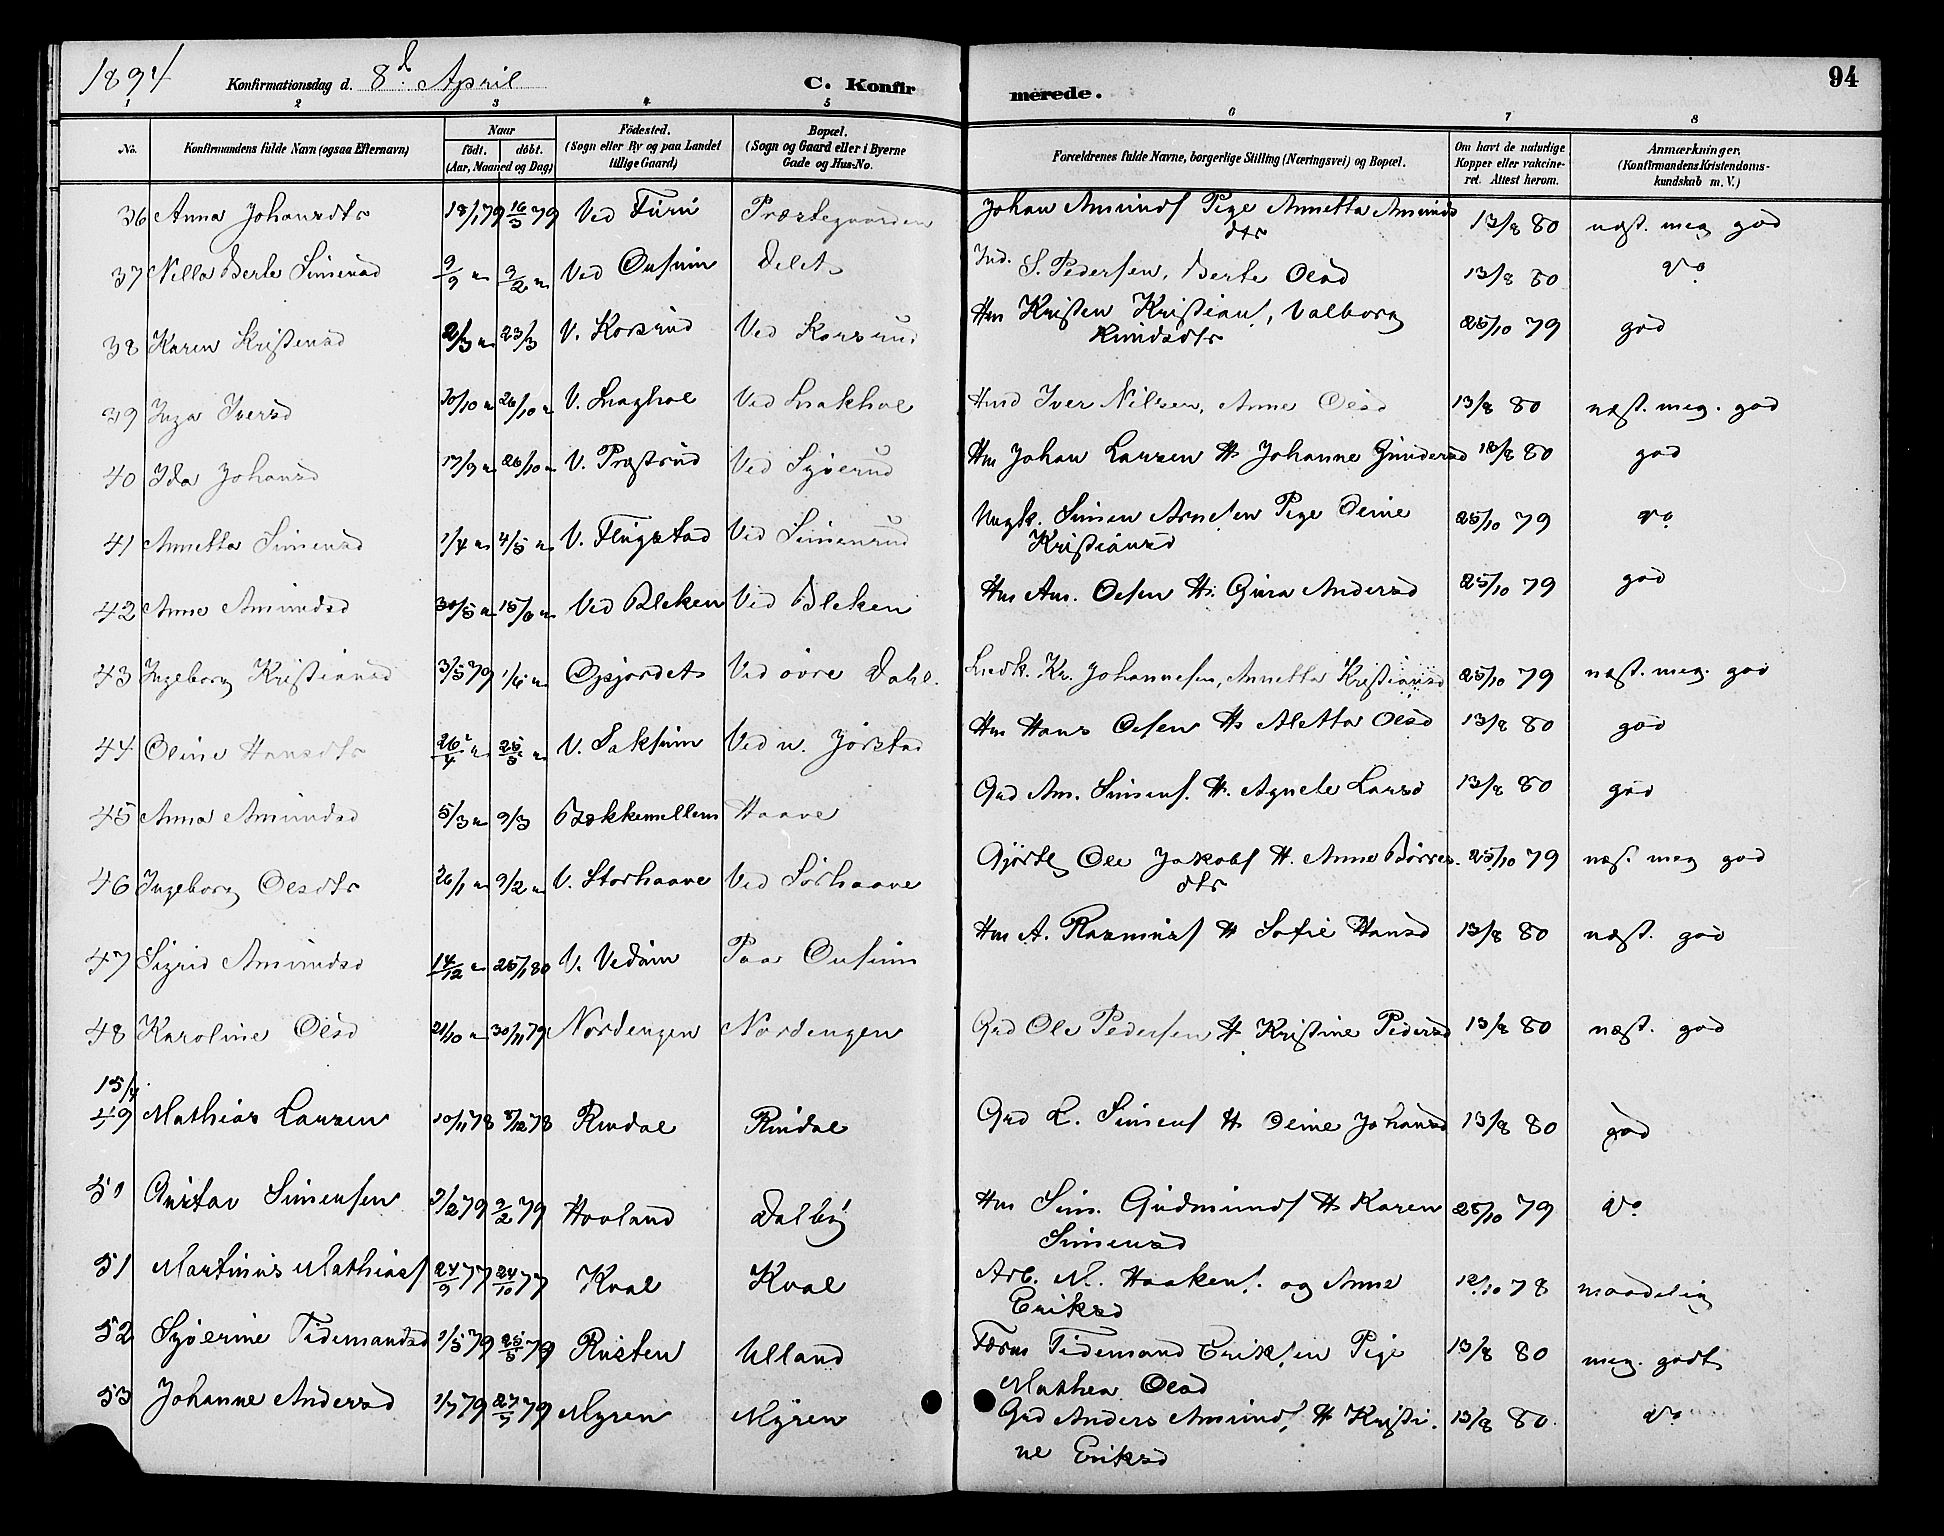 1894 Konfirmationsdag d. 8d April C. Konfirmerede. 94
1 2 3 4 5 6 7 8
No. Konfirmandens fulde Navn (ogsaa Efternavn) Naar födt. döbt. (Aar, Maaned og Dag) Födested. (Sogn eller By og paa Landet tillige Gaard) Bopæl. (Sogn og Gaard eller i Byerne Gade og Hus-No. Forældrenes fulde Navne, borgerlige Stilling (Næringsvei) og Bopæl. Om havt de naturlige Kopper eller vakcineret. Attest herom. Anmærkninger, (Konfirmandens Kristendomskundskab m. V.)
36 Anna Johansdtr 18/1 79 16/3 79 Ved Furu Præstegaarden Johan Amunds Pige Annetta Amundsdtr 13/8 80 næst. meg god
37 Nella Berte Simensd 9/9 " 9/2 " Ved Ousum Delet Ind. S. Pedersen, Berte Olsd 13/8 80 do
38 Karen Kristensd 2/3 " 23/3 V. Korsrud Ved Korsrud Hm Kristen Kristians, Valborg Knudsdtr 25/10 79 god
39 Inga Iversd 10/10 " 26/10 " V. Ved Hmd Iver Nilsen, Anne Olsd 13/8 80 næst. meg. god
40 Ida Johansd 17/9 " 26/10 " V. Præstrud Ved Syverud Hm Johan Larsen H Johanne Gundersd 13/8 80 god
41 Annetta Simensd 1/4 " 4/5 " V. Flugstad Ved Simenrud Ungk. Simen Arnesen Pige Oline Kristiansd 25/10 79 do
42 Anne Amundsd 30/5 " 15/6 " Ved Bleken Ved Bleken Hm Am. Olsen H. Gura Andersd 25/10 79 god
43 Ingeborg Kristiansd 3/5 79 1/6 " Opjordet Ved övre Dahl. Kr. Johannesen, Annetta Kristiansd 25/10 79 næst. meg. god
44 Oline Hansdtr 26/4 " 25/5 " V. Saksum Ved n. Jörstad Hm Hans Olsen H Aletta Olsd 13/8 80 god
45 Anna Amundsd 5/3 " 9/3 Bækkemellem Haave Grd Am. Simens. H. Agnete Larsd 13/8 80 god
46 Ingeborg Olsdtr 26/1 " 9/2 " V. Storhaave Ved Sörhaave Gjörtl Ole Jakobs H. Anne Börresdtr 25/10 79 næst meg god
47 Sigrid Amundsd 14/12 " 25/1 80 V. Vedum Paa Ousum Hm A. Rasmus H Sofie Hansd 13/8 80 næst. god
48 Karoline Olsd 21/10 " 30/11 79 Nordengen Nordengen Grd Ole Pedersen H Kristine Pedersd 13/8 80 næst. god
15/4
49 Mathias Larsen 10/11 78 8/12 78 Rindal Rindal Grd L. Simens H Oline Johansd 13/8 80 god
50 Gustav Simensen 2/2 79 9/2 79 Hovland Dalby Hm Sim. Gudmunds H Karen Simensd 25/10 79 do
51 Martinus Mathias 24/9 77 24/10 77 Kval Kval Arb. M. Haakens. og Anne Eriksd 12/10 78 maadelig
52 Syverine Tidemandsd 1/5 79 25/5 79 Rusten Ulland Tidemand Eriksen Pige Mathea Olsd 13/8 80 meg. godt
53 Johanne Andersd 1/7 79 27/7 79 Myren Myren Grd Anders Amunds, H Kristine Eriksd 13/8 80 do